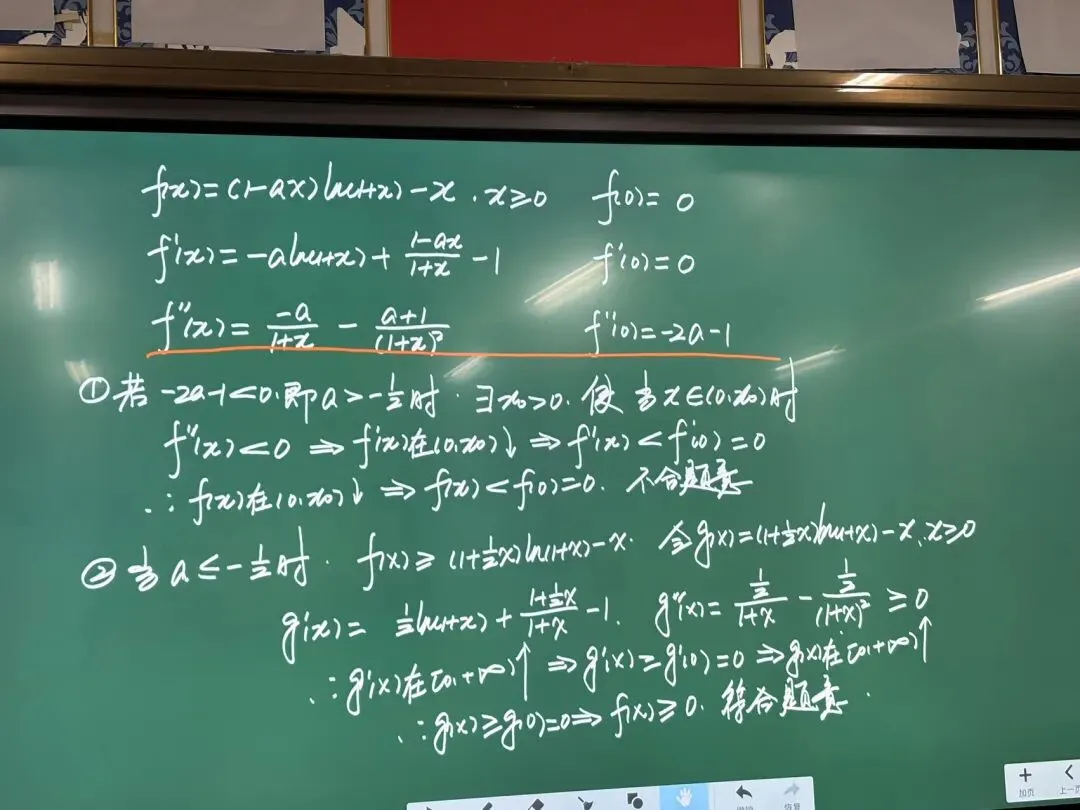 f(x)=(1-ax)ln(1+x)-x, x≥0 f(0)=0
f'(x)=-aln(1+x)+\frac{1-ax}{1+x}-1 f'(0)=0
f''(x)=\frac{-a}{1+x}-\frac{a+1}{(1+x)^2} f''(0)=-2a-1
①若-2a-1<0,即a>-\frac{1}{2}时,∃x₀>0,使当x∈(0,x₀)时
f''(x)<0⇒f'(x)在(0,x₀)↓⇒f'(x)<f'(0)=0
∴f(x)在(0,x₀)↓⇒f(x)<f(0)=0. 不合题意
②当a≤-\frac{1}{2}时, f(x)≥(1+\frac{1}{2}x)ln(1+x)-x. 令g(x)=(1+\frac{1}{2}x)ln(1+x)-x, x≥0
g'(x)=\frac{1}{2}ln(1+x)+\frac{1+\frac{1}{2}x}{1+x}-1. g''(x)=\frac{\frac{1}{2}}{1+x}-\frac{\frac{1}{2}}{(1+x)^2}≥0
∴g'(x)在[0,+∞)↑⇒g'(x)≥g'(0)=0⇒g(x)在[0,+∞)↑
∴g(x)≥g(0)=0⇒f(x)≥0. 符合题意.
加页
上一页
恢复